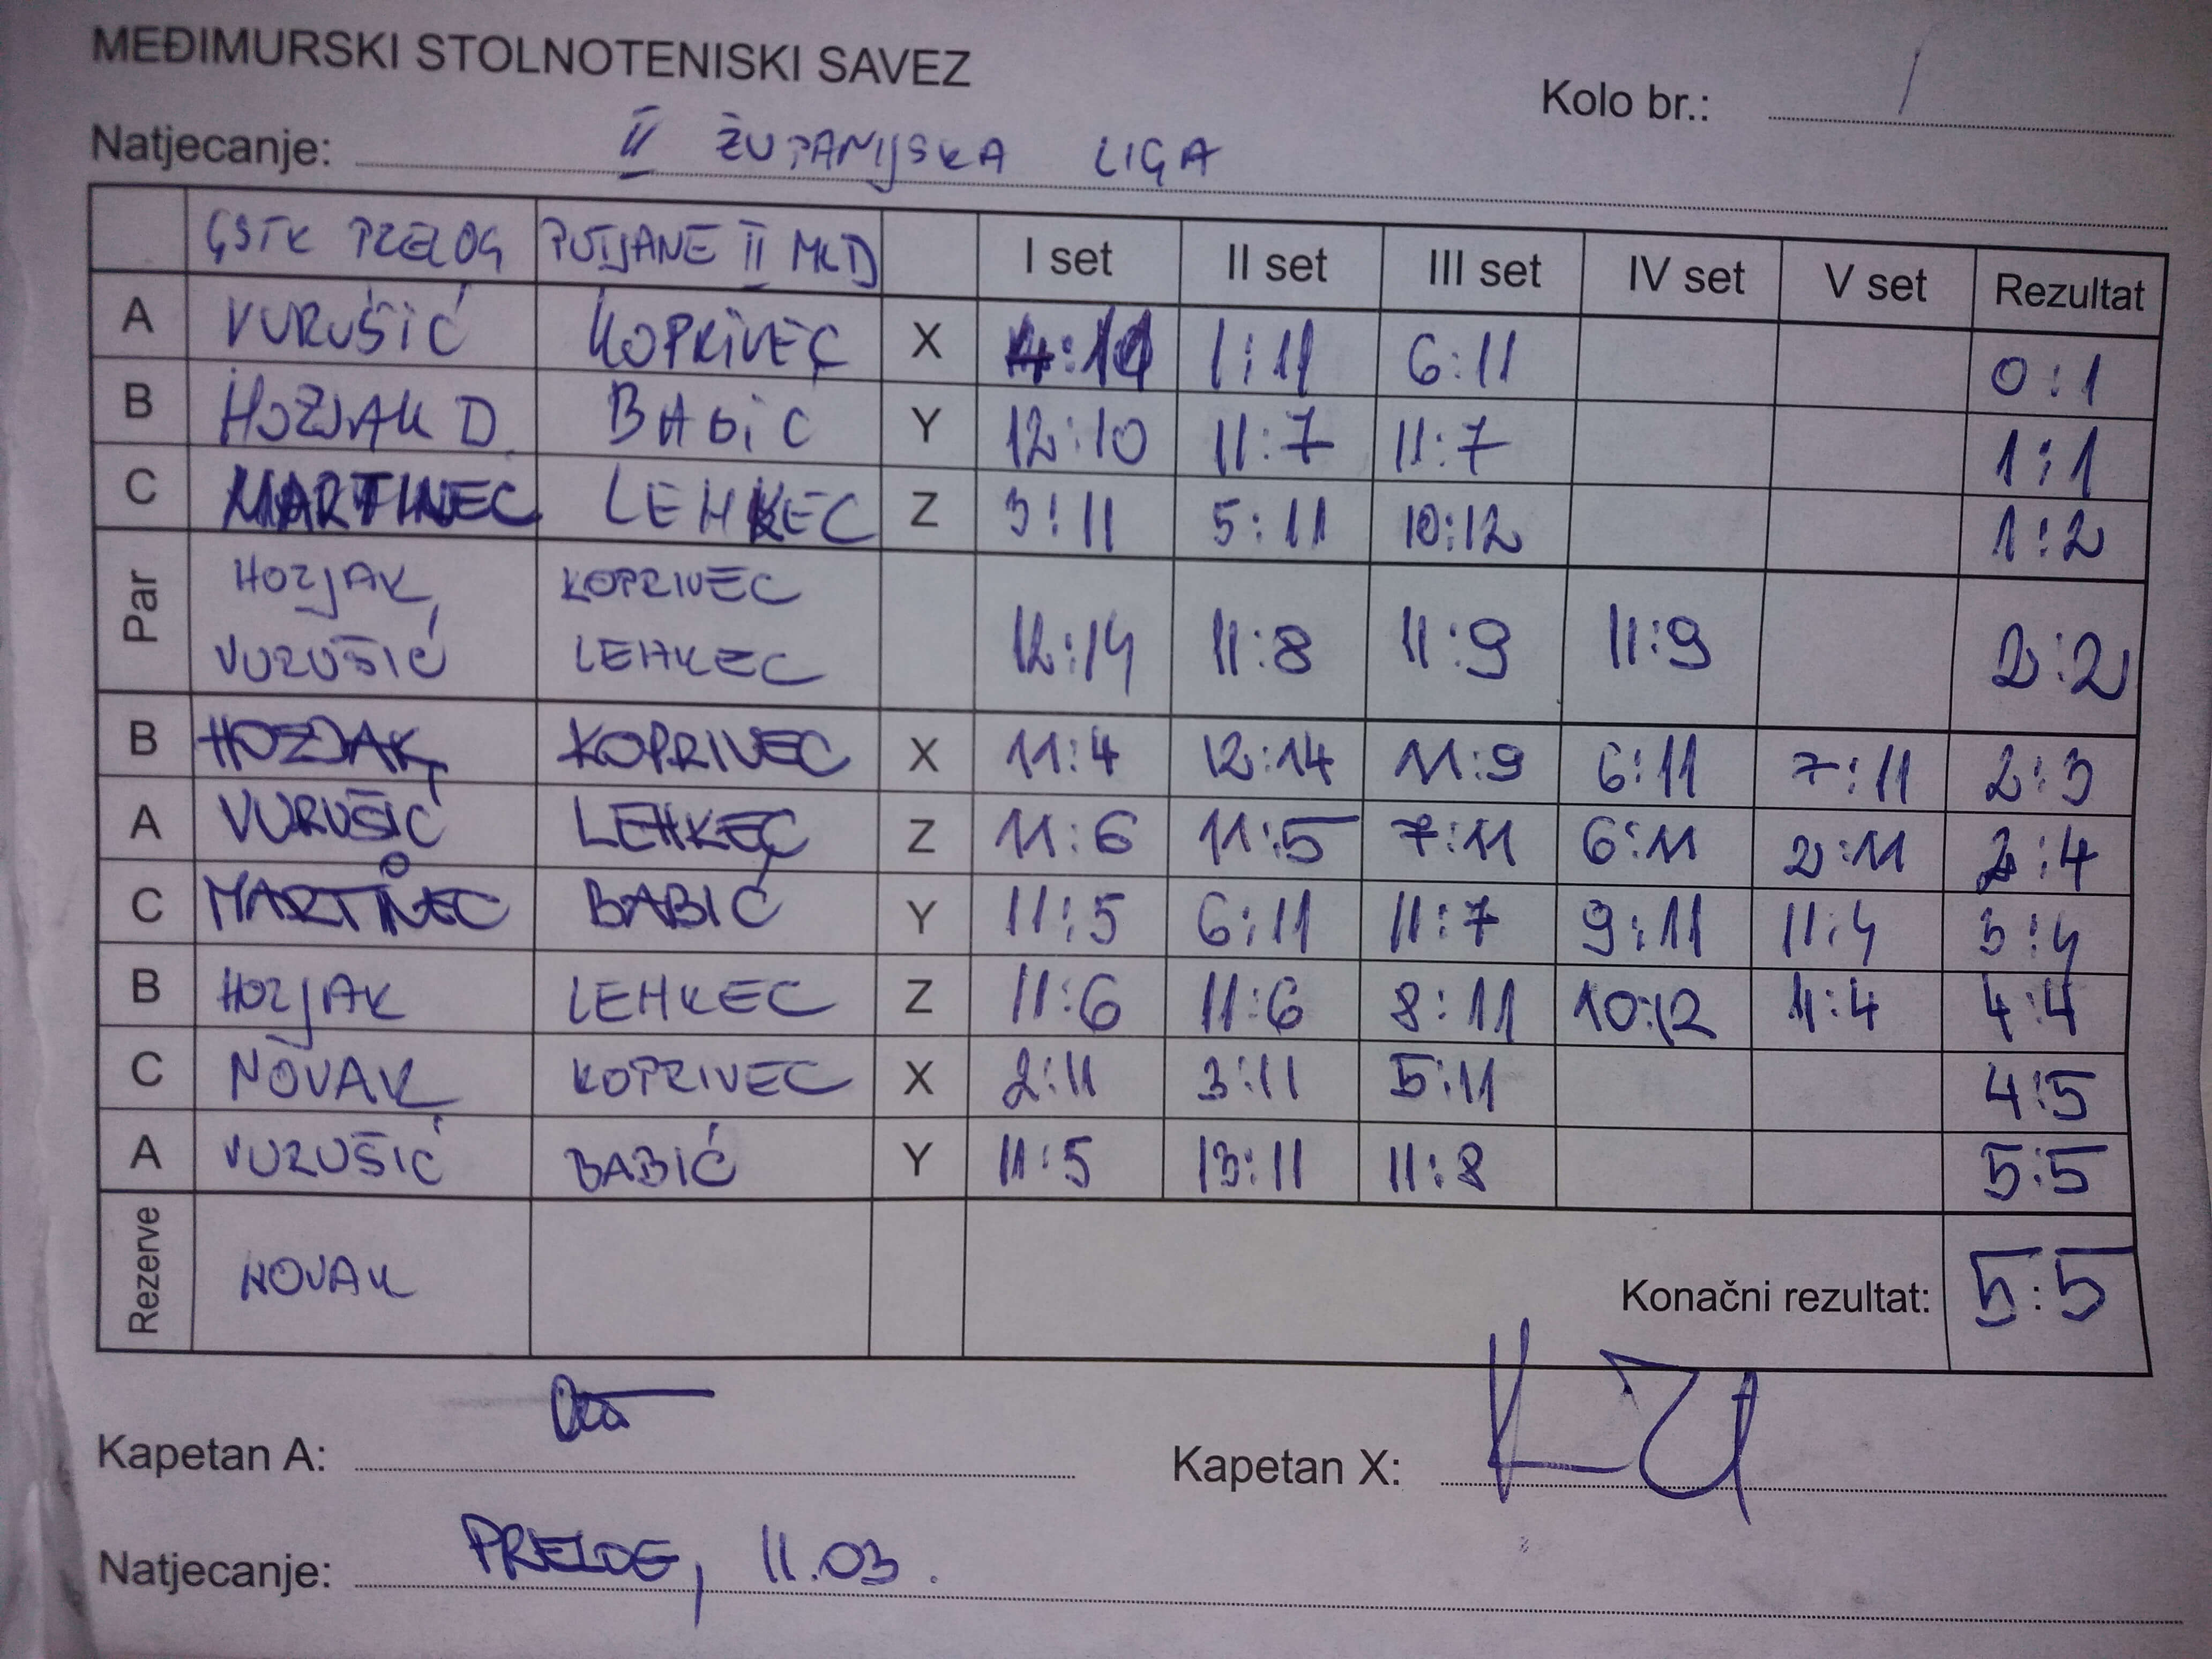 MEĐIMURSKI STOLNOTENISKI SAVEZ
Kolo br.: 1
Natjecanje: II ŽUPANIJSKA LIGA
GSTK PRELOG PUTJANE II MLD I set II set III set IV set V set Rezultat
A VURUŠIĆ KOPRIVEC X 4:11 1:11 6:11 0:1
B HOZJAK D. BABIĆ Y 12:10 11:7 11:7 1:1
C MARTINEC LEHKEC Z 3:11 5:11 10:12 1:2
Par HOZJAK, KOPRIVEC 12:14 11:8 11:9 11:9 2:2
VURUŠIĆ LEHKEC
B HOZJAK KOPRIVEC X 11:4 12:14 11:9 6:11 7:11 2:3
A VURUŠIĆ LEHKEC Z 11:6 11:5 7:11 6:11 2:11 2:4
C MARTINEC BABIĆ Y 11:5 6:11 11:7 9:11 11:4 3:4
B HOZJAK LEHKEC Z 11:6 11:6 8:11 10:12 11:4 4:4
C NOVAK KOPRIVEC X 2:11 3:11 5:11 4:5
A VURUŠIĆ BABIĆ Y 11:5 13:11 11:8 5:5
Rezerve NOVAK Konačni rezultat: 5:5
Kapetan A: Kapetan X:
Natjecanje: PRELOG, 11.03.